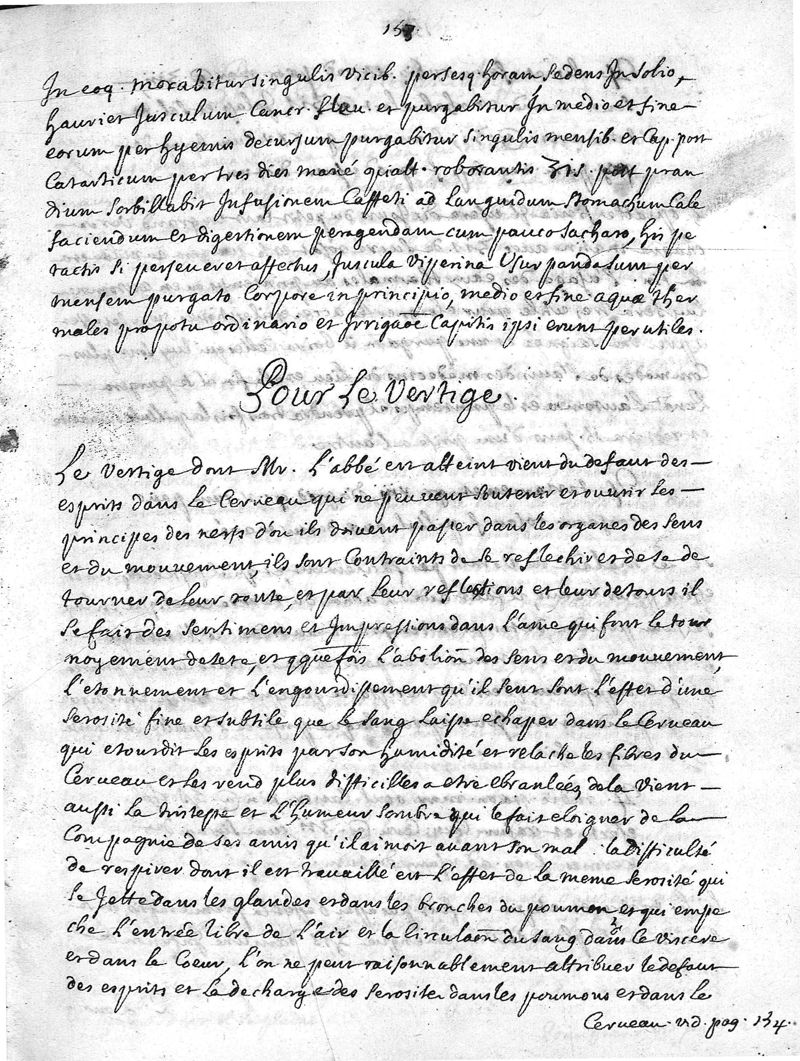 153
In eoq. morabitur singulis vicib. per sesq. horam sedens In solio,
hauriet Jusculum Cancr. fluv. et purgabitur In medio et fine
eorum per hyemis decursum purgabitur singulis mensib. et Cap. post
Catarticum per tres dies mané opialt. roborantis ʒis. post pran
dium sorbillabit Infusionem Caffeti ad Languidum stomachum Cale
faciendum et digestionem peragendam cum pauco sacharo, his pe
ractis si perseveret affectus, Juscula Viperina Usurpanda sunt per
mensem purgato Corpore in principio, medio et fine aquæ ther
males pro potu ordinario et Irrigaōe Capitis ipsi erunt perutiles.
Pour Le Vertige.
Le Vertige dont Mr. L'abbé est atteint vient du defaut des
esprits dans le Cerveau qui ne peuvent soutenir et ouvrir les
principes des nerfs d'ou ils doivent passer dans les organes des sens
et du mouvement, ils sont Contraints de se reflechir et de se de
tourner de leur route, et par leur reflections et leur detours il
se fait des sentimens et Impressions dans l'ame qui font le tour
noyement de tete, et qquefois l'aboliōn des sens et du mouvement,
l'etonnement et L'engourdissement qu'il sent sont l'effet d'une
serosité fine et subtile que le sang laisse echaper dans le Cerveau
qui etourdit les esprits par son humidité et relache les fibres du
Cerveau et les rend plus difficilles a etre ebranleéz de la vient
aussi la tristesse et L'humeur sombre qui le fait eloigner de la
Compagnie de ses amis qu'il aimoit avant son mal. la difficulté
de respirer dont il est travaillé est l'effet de la meme serosité qui
se Jette dans les glandes et dans les bronches du poumon et qui empe
che L'entrée libre de L'air et la circulaōn du sang dans le viscere
et dans le Coeur, l'on ne peut raisonnablement attribuer le defaut
des esprits et la decharge des serositez dans les poumons et dans le
Cerveau. vid. pag. 154.